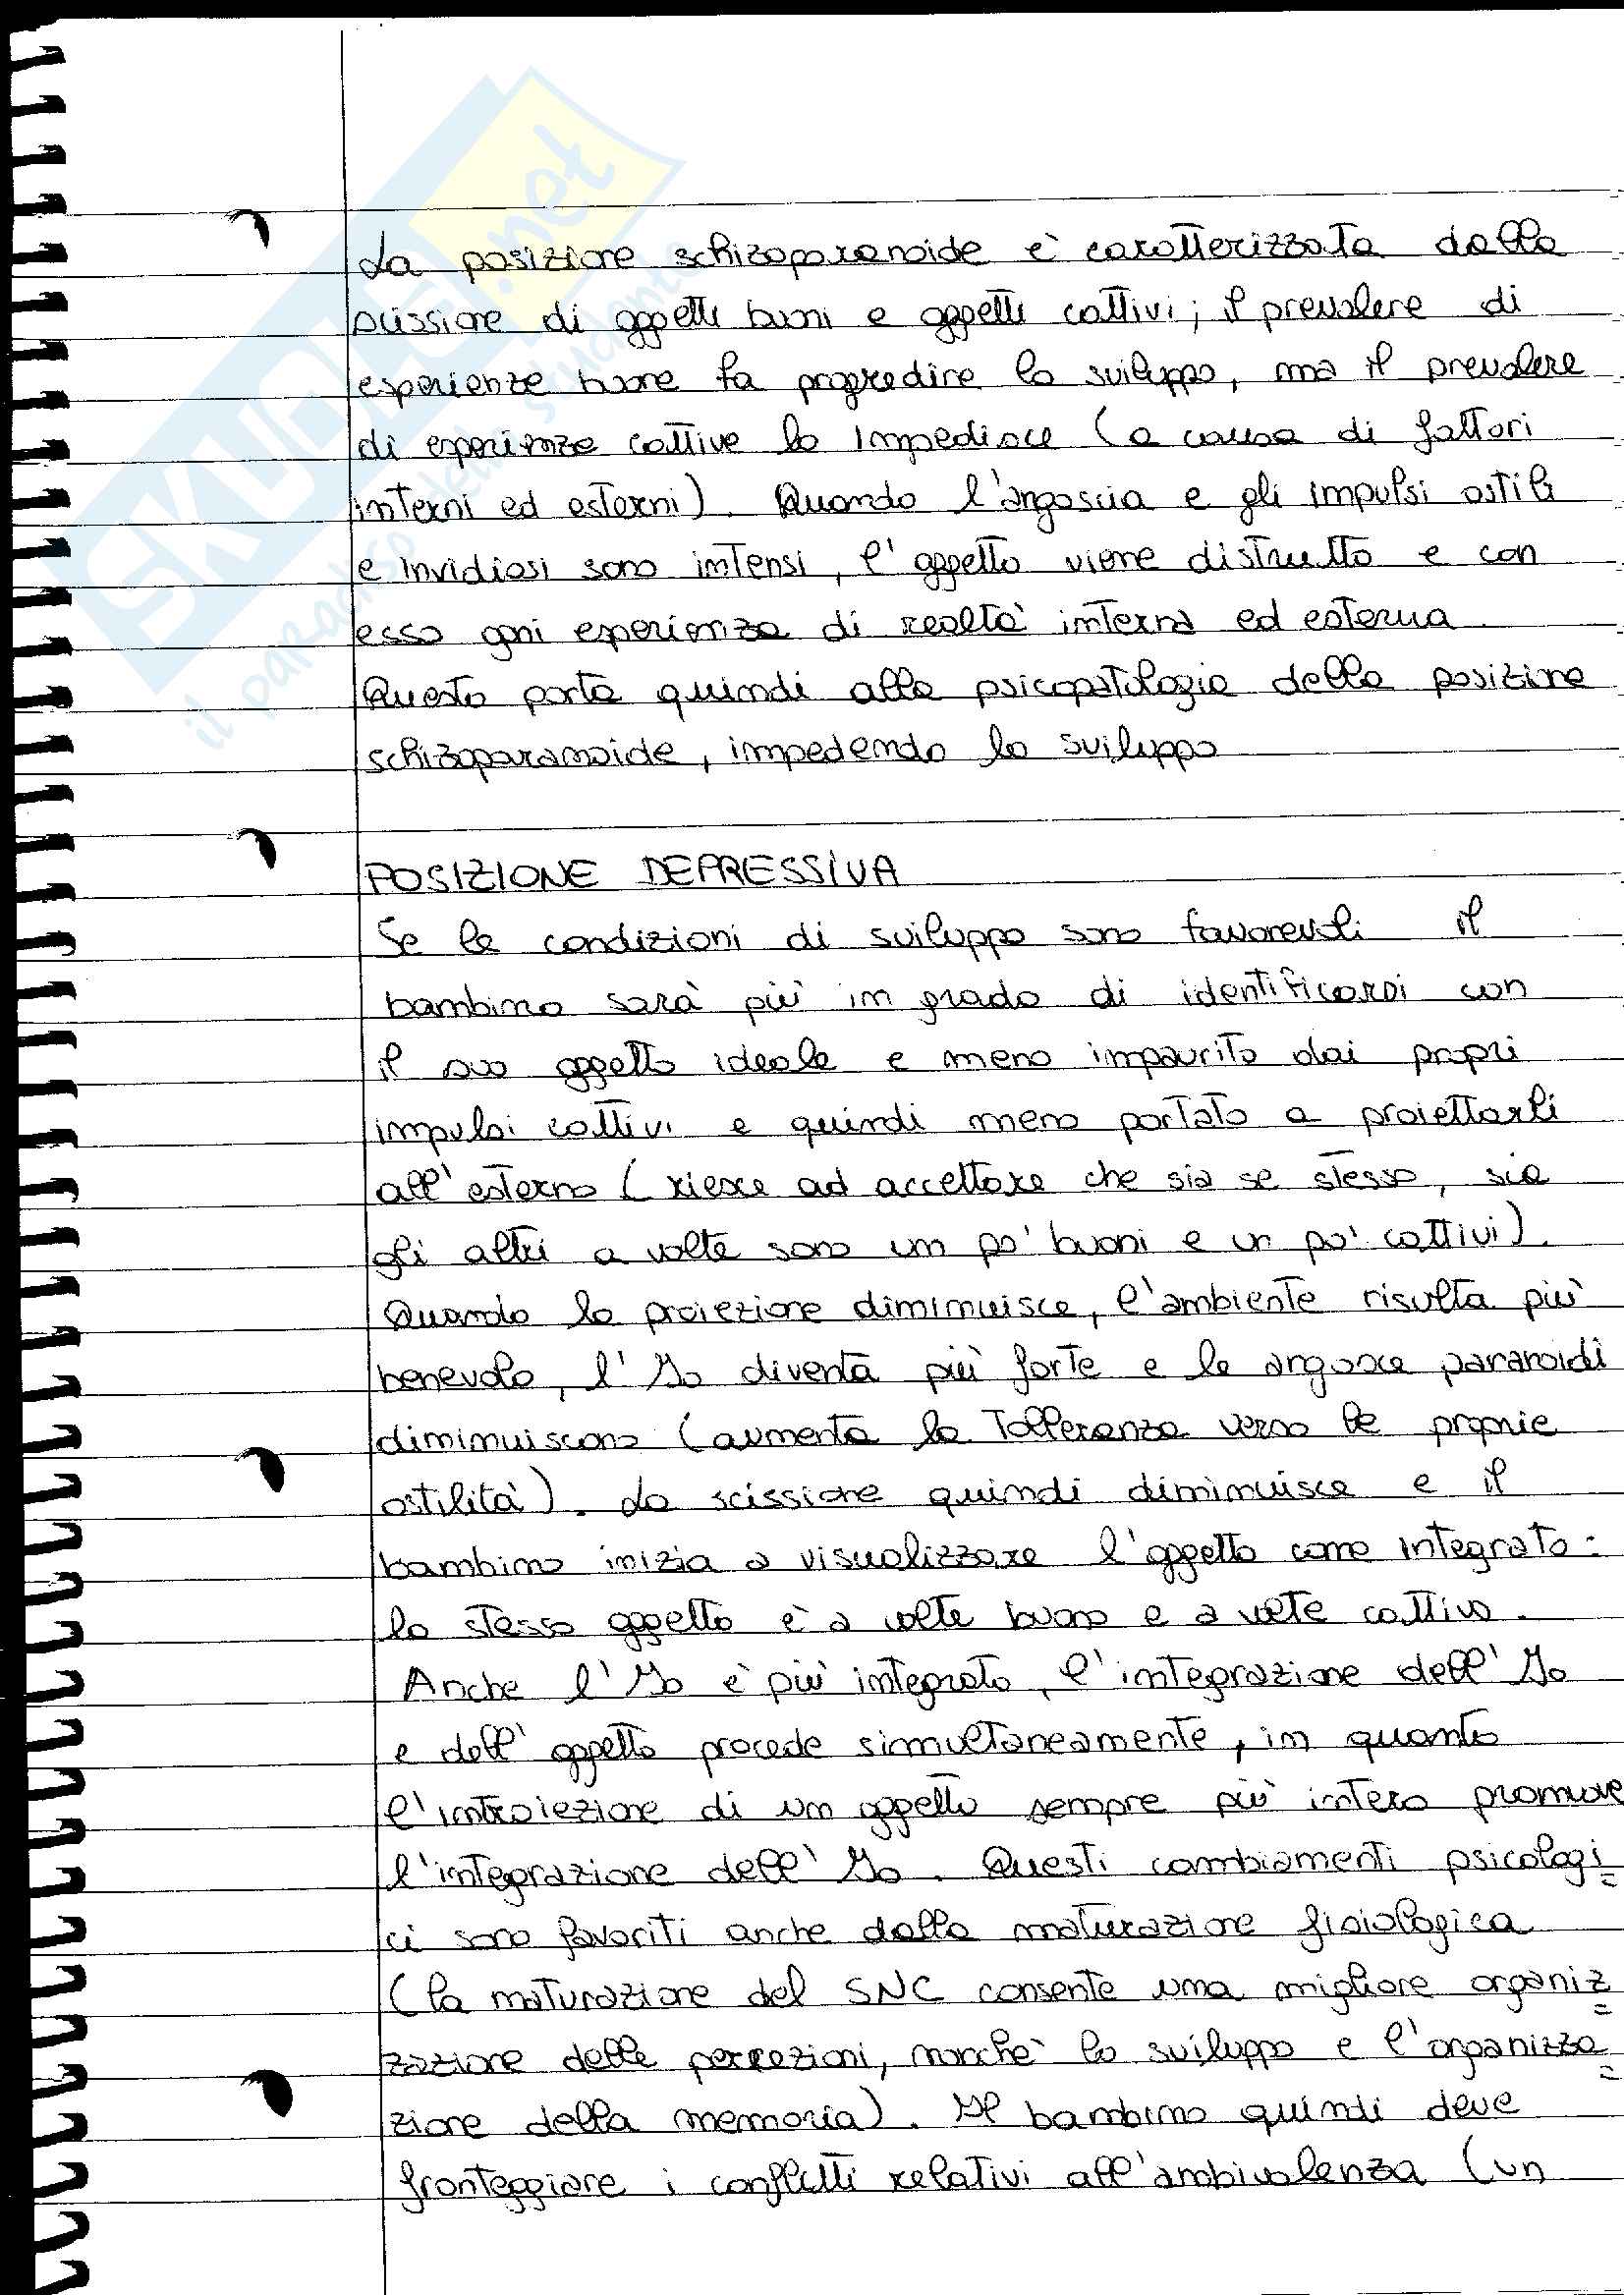 SKUOLA.net
il paradiso dello studente
La posizione schizoparanoide è caratterizzata dalla
scissione di oggetti buoni e oggetti cattivi; il prevalere di
esperienze buone fa progredire lo sviluppo, ma il prevalere
di esperienze cattive lo impedisce (a causa di fattori
interni ed esterni). Quando l'angoscia e gli impulsi ostili
e invidiosi sono intensi, l'oggetto viene distrutto e con
esso ogni esperienza di realtà interna ed esterna.
Questo porta quindi alla psicopatologia della posizione
schizoparanoide, impedendo lo sviluppo
POSIZIONE DEPRESSIVA
Se le condizioni di sviluppo sono favorevoli il
bambino sarà più in grado di identificarsi con
il suo oggetto ideale e meno impaurito dai propri
impulsi cattivi e quindi meno portato a proiettarli
all'esterno (riesce ad accettare che sia se stesso, sia
gli altri a volte sono un po' buoni e un po' cattivi).
Quando la proiezione diminuisce, l'ambiente risulta più
benevolo, l'Io diventa più forte e le angosce paranoidi
diminuiscono (aumenta la tolleranza verso le proprie
ostilità). La scissione quindi diminuisce e il
bambino inizia a visualizzare l'oggetto come integrato:
lo stesso oggetto è a volte buono e a volte cattivo.
Anche l'Io è più integrato, l'integrazione dell'Io
e dell'oggetto procede simultaneamente, in quanto
l'introiezione di un oggetto sempre più intero promuove
l'integrazione dell'Io. Questi cambiamenti psicologi=
ci sono favoriti anche dalla maturazione fisiologica
(la maturazione del SNC consente una migliore organiz=
zazione delle percezioni, nonchè lo sviluppo e l'organizza=
zione della memoria). Il bambino quindi deve
fronteggiare i conflitti relativi all'ambivalenza (un